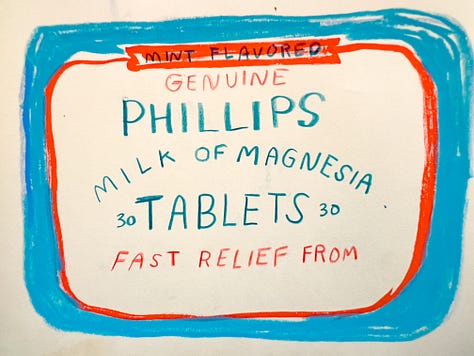 MINT FLAVORED
GENUINE
PHILLIPS
MILK OF MAGNESIA
30 TABLETS 30
FAST RELIEF FROM